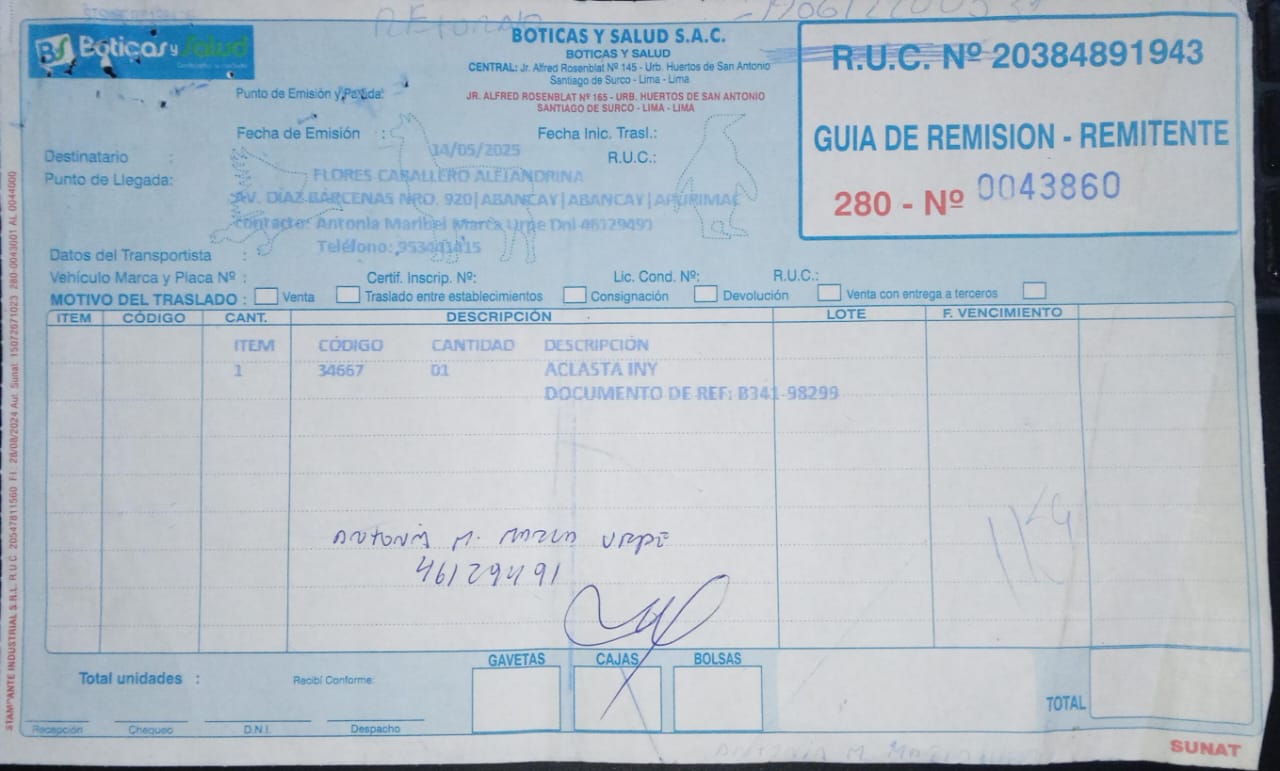 RETORNO
BS Boticas y Salud
BOTICAS Y SALUD S.A.C.
BOTICAS Y SALUD
CENTRAL: Jr. Alfred Rosenblat Nº 145 - Urb. Huertos de San Antonio
Santiago de Surco - Lima - Lima
Punto de Emisión y Partida:
JR. ALFRED ROSENBLAT Nº 165 - URB. HUERTOS DE SAN ANTONIO
SANTIAGO DE SURCO - LIMA - LIMA
R.U.C. Nº 20384891943
GUIA DE REMISION - REMITENTE
280 - Nº 0043860
Fecha de Emisión : 14/05/2025 Fecha Inic. Trasl.:
Destinatario : FLORES CABALLERO ALEJANDRINA R.U.C.:
Punto de Llegada: AV. DÍAZ BÁRCENAS NRO. 920|ABANCAY|ABANCAY|APURIMAC
contacto: Antonia Maribel Marca Urpe Dni 46129491
Teléfono: 953441415
Datos del Transportista :
Vehículo Marca y Placa Nº : Certif. Inscrip. Nº: Lic. Cond. Nº: R.U.C.:
MOTIVO DEL TRASLADO : Venta Traslado entre establecimientos Consignación Devolución Venta con entrega a terceros
ITEM CÓDIGO CANT. DESCRIPCIÓN LOTE F. VENCIMIENTO
ITEM CÓDIGO CANTIDAD DESCRIPCIÓN
1 34667 01 ACLASTA INY
DOCUMENTO DE REF: B341-98299
ANTONIA M. MARCA URPE
46129491
GAVETAS CAJAS BOLSAS
Total unidades : Recibí Conforme:
TOTAL
Recepción Chequeo D.N.I. Despacho
SUNAT